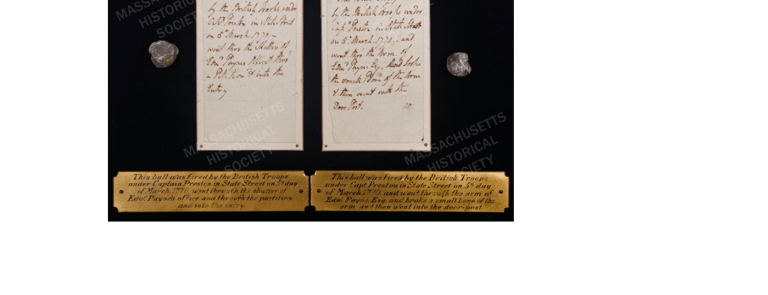 by the British troops under
Capt Preston in State Street
on 5th March 1770 –
went thro the Shutter of
Edwd Paynes Office & thro'
a Petition & into the
Entry
by the British troops under
Capt Preston in State Street
on 5th March 1770, and
went thro the Arm of
Edwd Payne Esq. and broke
the small bone of the Arm
& then went into the
Door Post.
This ball was fired by the British Troops
under Captain Preston in State Street on 5th day
of March 1770, went through the shutter of
Edwd Payne's office and through the partition
and into the entry.
This ball was fired by the British Troops
under Capt Preston in State Street on 5th day
of March 1770, and went through the arm of
Edwd Payne, Esq. and broke a small bone of the
arm and then went into the door-post.
MASSACHUSETTS
HISTORICAL
SOCIETY
MASSACHUSETTS
HISTORICAL
SOCIETY
MASSACHUSETTS
HISTORICAL
SOCIETY